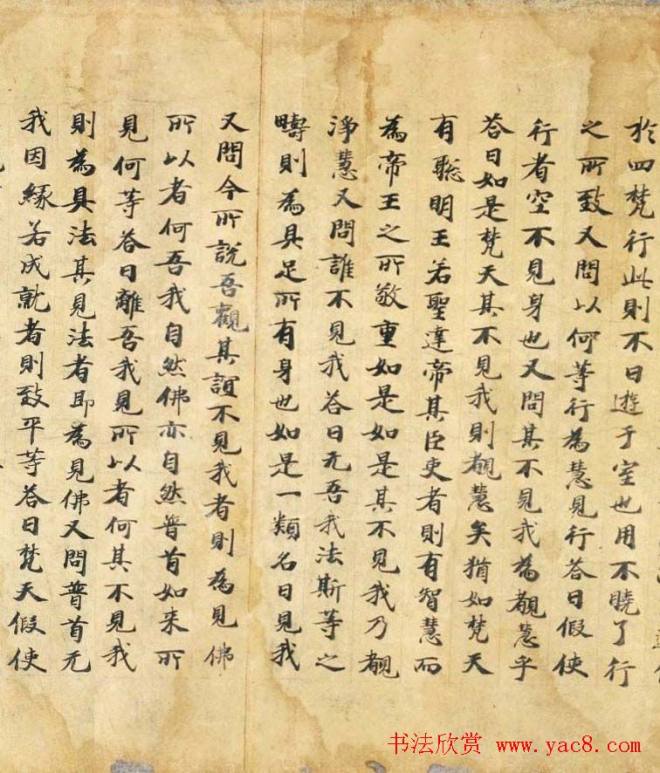 於四梵行此則不曰遊于空也用不曉了行
之所致又問以何等行為慧見行答曰假使
行者空不見身也又問其不見我為覩慧乎
答曰如是梵天其不見我則覩慧矣猶如梵天
有聡明王若聖達帝其臣吏者則有智慧而
為帝王之所敬重如是如是其不見我乃覩
淨慧又問誰不見我答曰无吾我法斯等之
疇則為具足所有身也如是一類名曰見我
又問今所說吾觀其誼不見我者則為見佛
所以者何吾我自然佛亦自然普首如来所
見何等答曰離吾我見所以者何其不見我
則為具法其見法者即為見佛又問普首无
我因緣若成就者則致平等答曰梵天假使
书法欣赏 www.yac8.com